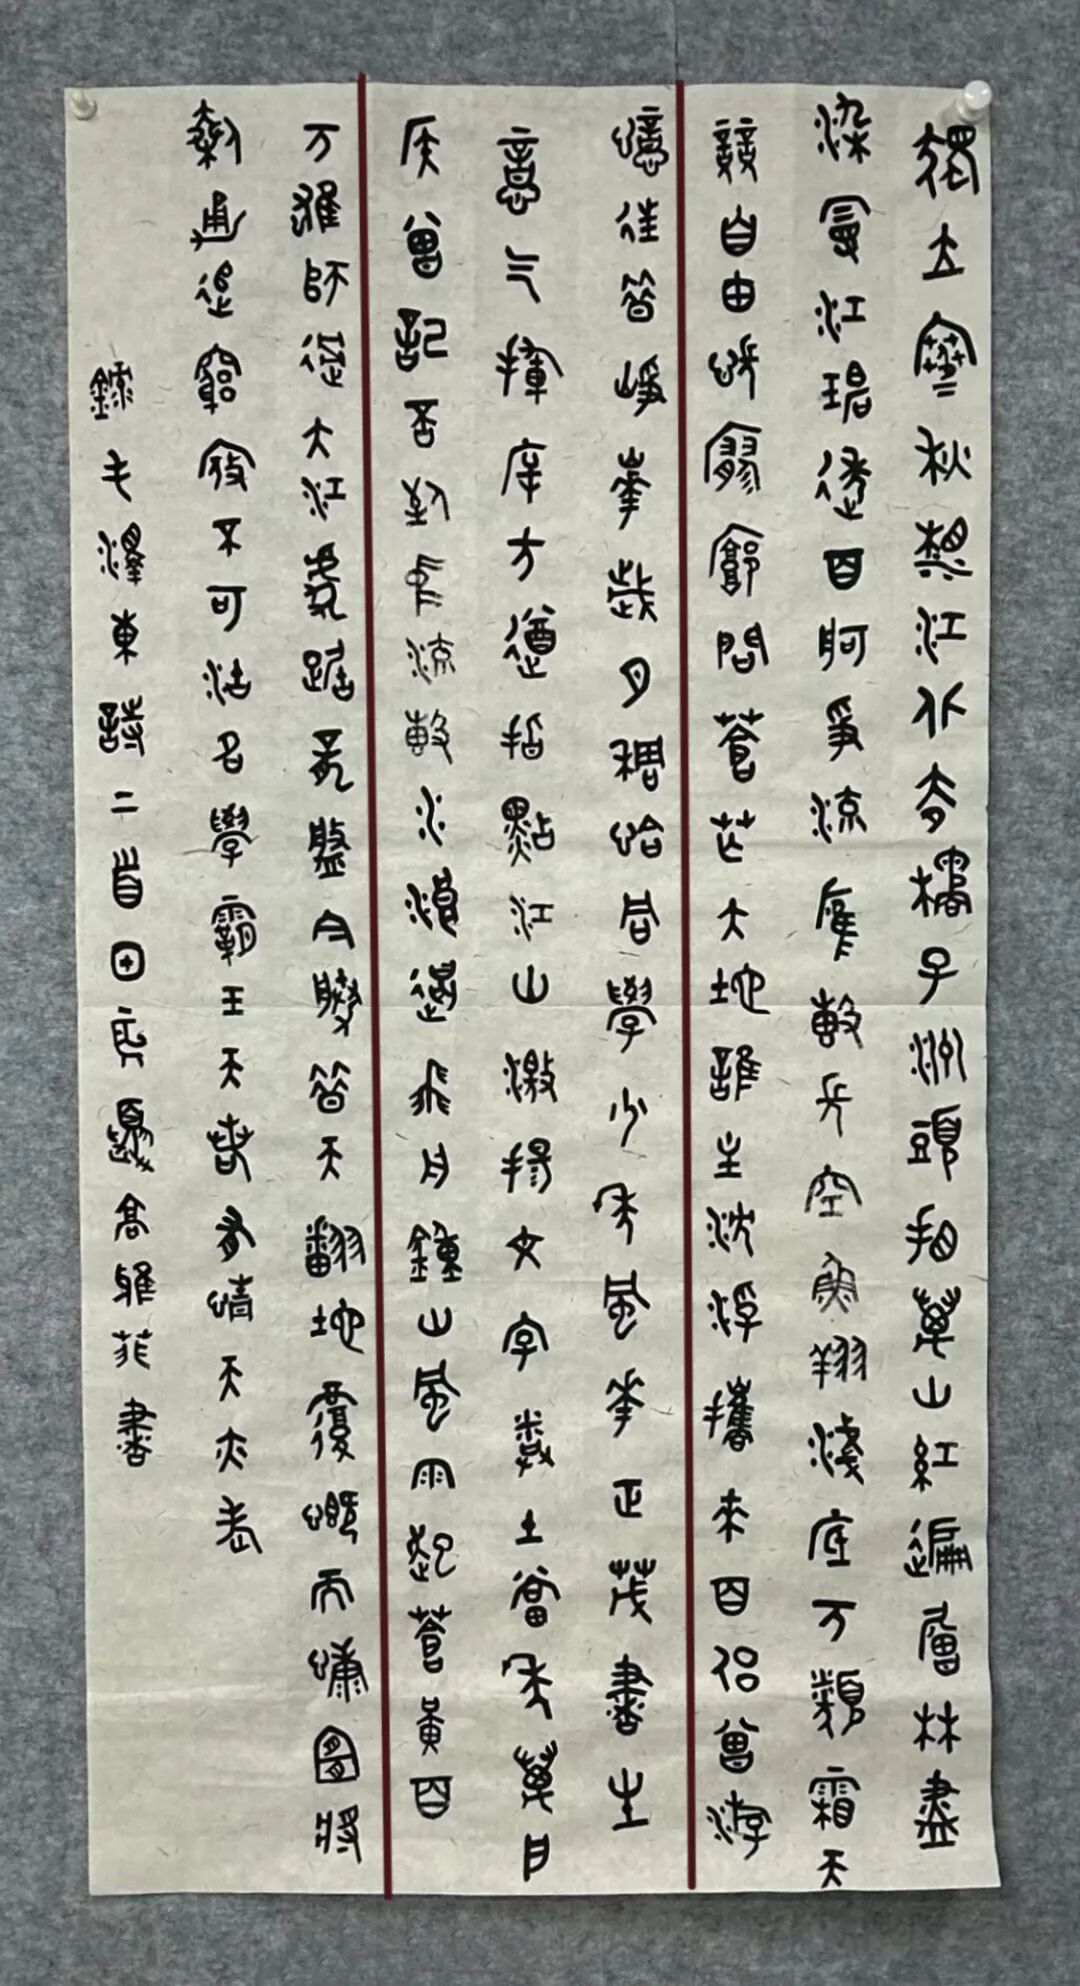 獨立寒秋湘江北去橘子洲頭看萬山紅遍層林盡
染漫江碧透百舸爭流鷹擊長空魚翔淺底万類霜天
競自由悵寥廓問蒼茫大地誰主沉浮攜來百侶曾游
憶往昔崢嶸歲月稠恰同學少年風華正茂書生
意氣揮斥方遒指點江山激揚文字糞土當年萬戶
侯曾記否到中流擊水浪遏飛舟鐘山風雨起蒼黃百
万雄師過大江虎踞龍盤今勝昔天翻地覆慨而慷宜將
剩勇追窮寇不可沽名學霸王天若有情天亦老
錄毛澤東詩二首甲辰夏高雅菲書